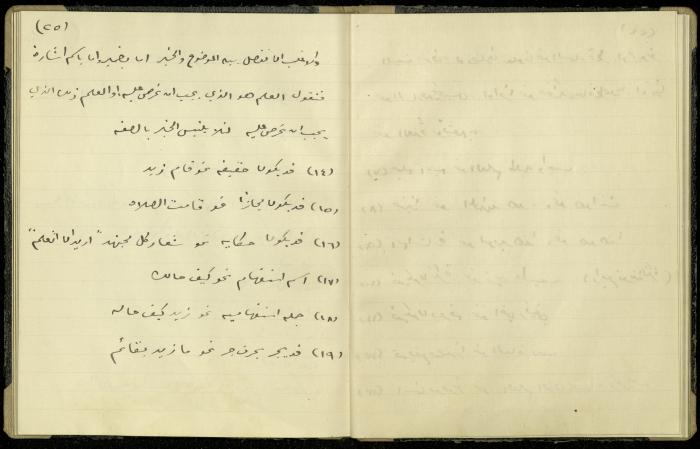 (٢٥)
والاغلب انا نفصل بين الموضوع والخبر اما بضمير واما باسم اشارة
فنقول العلم هو الذي يجب ان نحرص عليه او العلم الذي
يجب ان نحرص عليه لئلا يلتبس الخبر بالصفه
(١٤) قد يكون حقيقه نحو قام زيد
(١٥) قد يكون مجازاً نحو قامت الصلاه
(١٦) قد يكون حكايه نحو شعار كل مجتهد "اريد ان اتعلم"
(١٧) اسم استفهام نحو كيف حالك
(١٨) جمله استفهاميه نحو زيد كيف حاله
(١٩) قد يجر بحرف جر نحو ما زيد بقائم